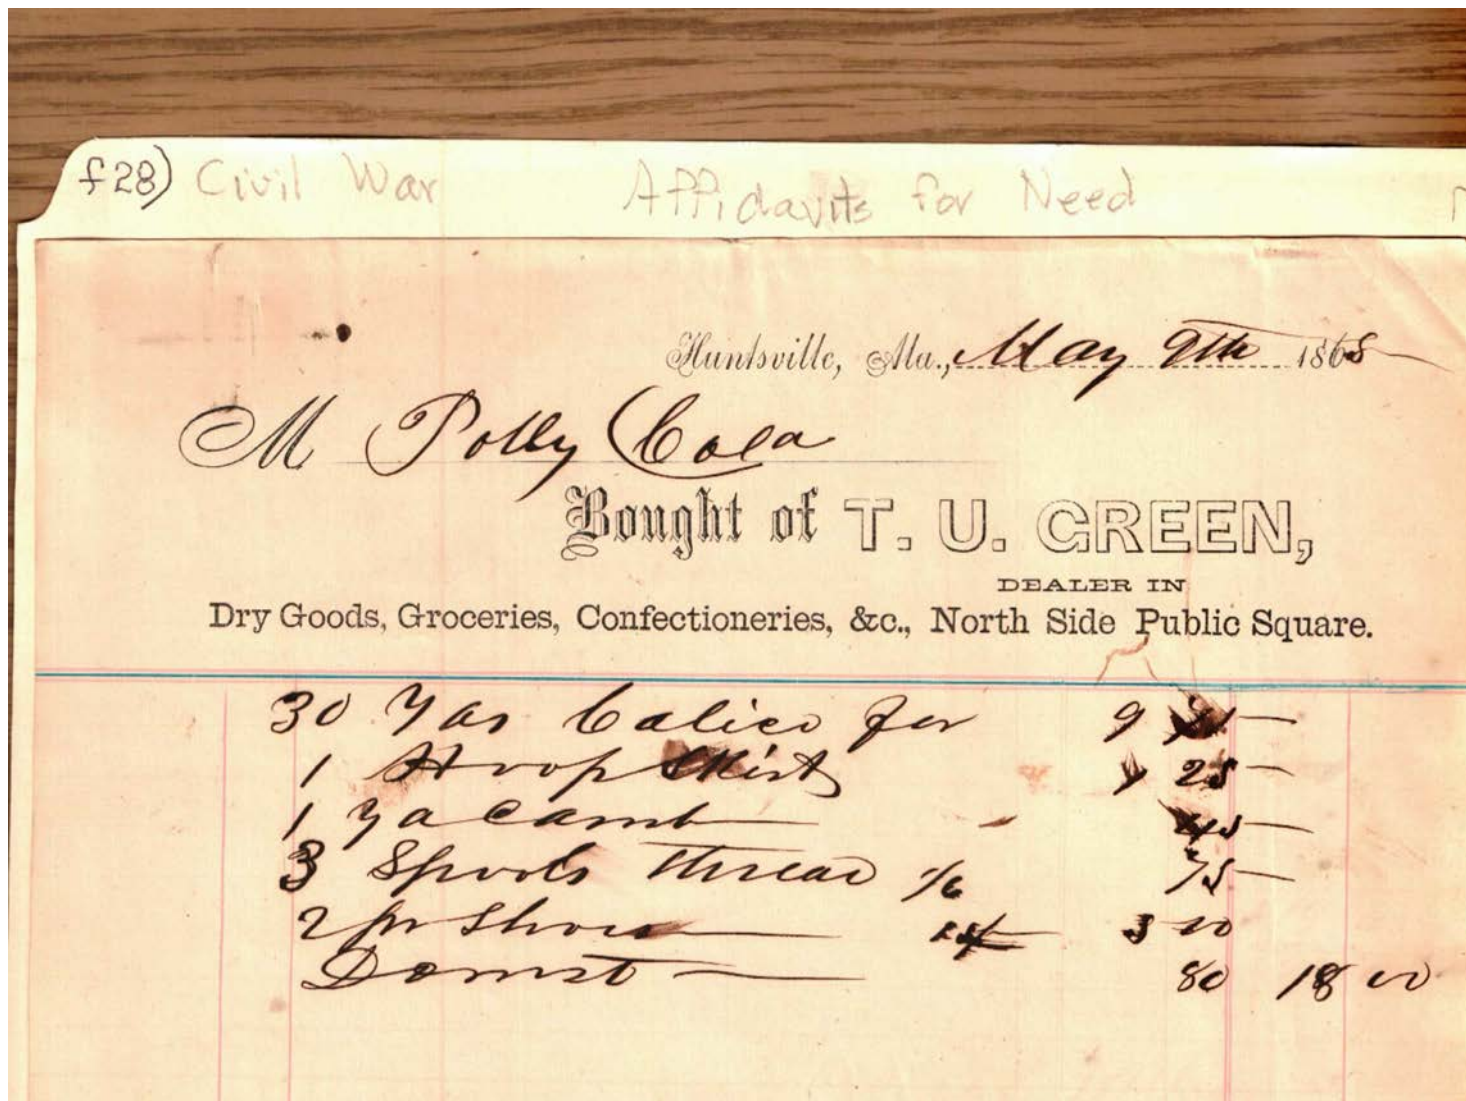 f28) Civil War Affidavits for Need
Huntsville, Ala., May 9th 1868
M Polly Cola
Bought of T. U. GREEN,
DEALER IN
Dry Goods, Groceries, Confectioneries, &c., North Side Public Square.
30 Yds Calico for 9
1 Hoop Skirt 25
1 Yd Camb 45
3 Spools thread 75
2 pr Shoes 3 00
Domst 80 18 00